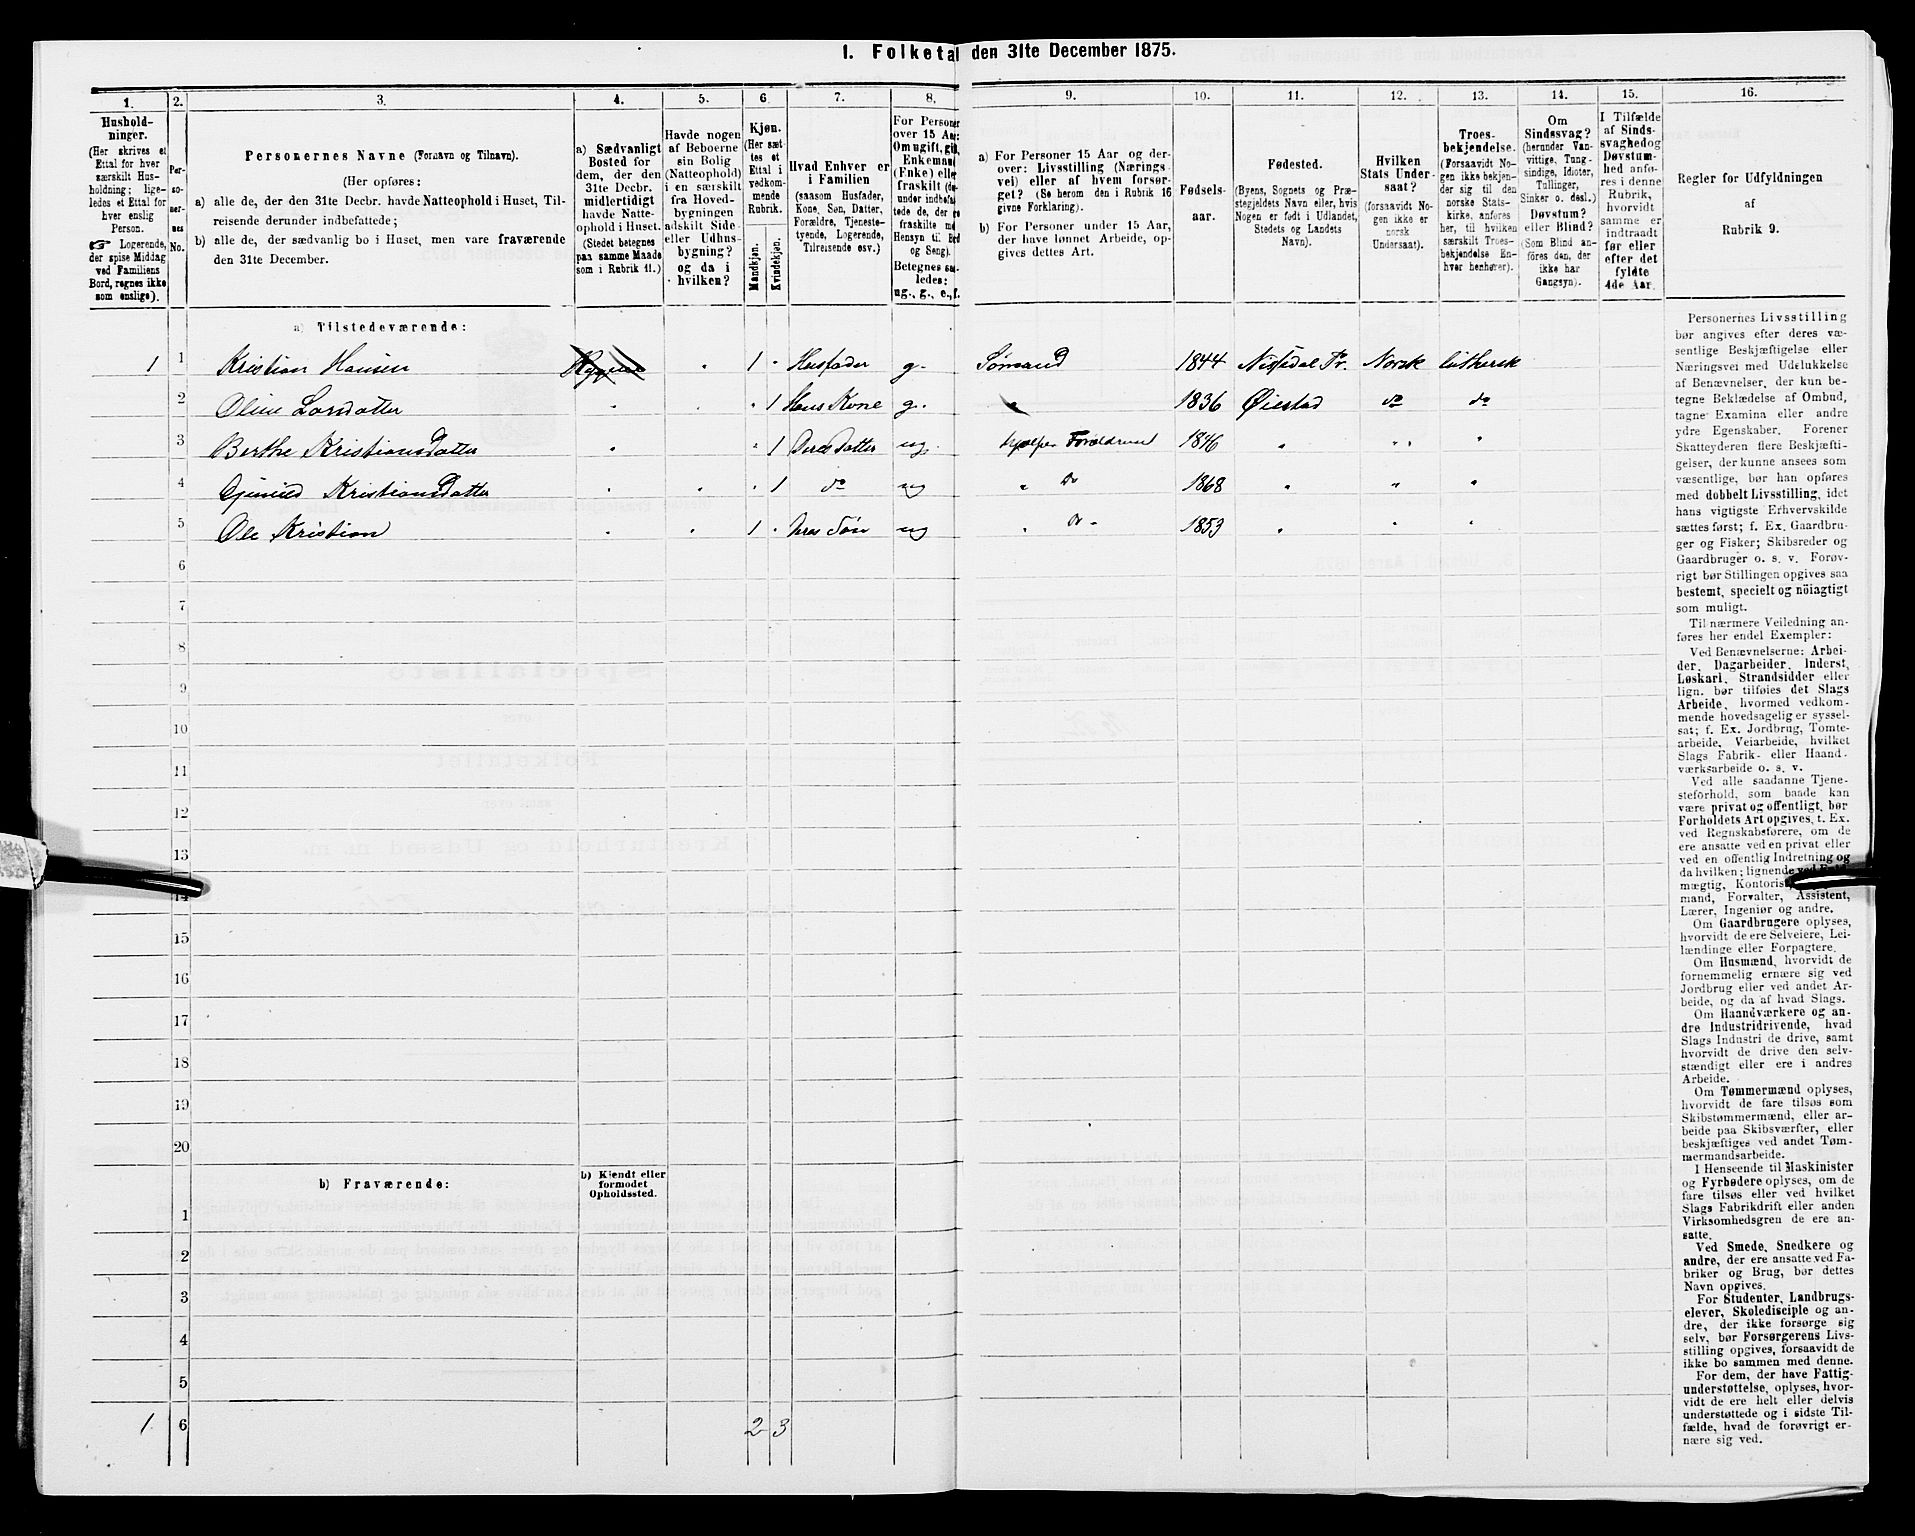 1. Folketal den 31te December 1875.
1. 2. 3. 4. 5. 6. 7. 8. 9. 10. 11. 12. 13. 14. 15. 16.
Hushold-
ninger.
(Her skrives et
Ettal for hver
særskilt Hus-
holdning; lige-
ledes et Ettal for
hver enslig
Person.
☞ Logerende,
der spise Middag
ved Familiens
Bord, regnes ikke
som enslige).
Per-
so-
ner-
nes
No.
Personernes Navne (Fornavn og Tilnavn).
(Her opføres:
a) alle de, der den 31te Decbr. havde Natteophold i Huset, Til-
reisende derunder indbefattede;
b) alle de, der sædvanlig bo i Huset, men vare fraværende
den 31te December.
a) Sædvanligt
Bosted for
dem, der den
31te Decbr.
midlertidigt
havde Natte-
ophold i Huset.
(Stedet betegnes
paa samme Maade
som i Rubrik 11.)
Havde nogen
af Beboerne
sin Bolig
(Natteophold)
i en særskilt
fra Hoved-
bygningen
adskilt Side-
eller Udhus-
bygning?
og da i
hvilken?
Kjøn.
(Her sæt-
tes et
Ettal i
vedkom-
mende
Rubrik.
Mandkjøn.
Kvindekjøn.
Hvad Enhver er
i Familien
(saasom Husfader,
Kone, Søn, Datter,
Forældre, Tjeneste-
tyende, Logerende,
Tilreisende osv.)
For Personer
over 15 Aar:
Om ugift, gift,
Enkemand
(Enke) eller
fraskilt
Hensyn til Bord
og Seng).
Betegnes saa-
ledes:
ug., g., e., f.
a) For Personer 15 Aar og der-
over: Livsstilling (Nærings-
vei) eller af hvem forsør-
get? (Se herom den i Rubrik 16
givne Forklaring).
b) For Personer under 15 Aar,
der have lønnet Arbeide, op-
gives dettes Art.
Fødsels-
aar.
Fødested.
(Byens, Sognets og Præ-
stegjeldets Navn eller, hvis
Nogen er født i Udlandet,
Stedets og Landets
Navn).
Hvilken
Stats Under-
saat?
(forsaavidt No-
gen ikke er
norsk
Undersaat).
Troes-
bekjendelse.
(Forsaavidt No-
gen ikke bekjen-
der sig til den
norske Stats-
kirke, anføres
her, til hvilken
særskilt Troes-
bekjendelse En-
hver henhører).
Om
Sindssvag?
(herunder Van-
vittige, Tung-
sindige, Idioter,
Tullinger,
Sinker o. desl.)
Døvstum?
eller Blind?
(Som Blind an-
føres den, der
ikke har
Gangsyn).
I Tilfælde
af Sinds-
svaghed og
Døvstum-
hed anfø-
res i denne
Rubrik,
hvorvidt
samme er
indtraadt
før eller
efter det
fyldte
4de Aar.
Regler for Udfyldningen
af
Rubrik 9.
a) Tilstedeværende:
1 1 Kristian Hansen 1 Husfader g. Sømand 1844 Nissedal Pr. Norsk luthersk
2 Oline Larsdatter 1 Hans Kone g. 1836 Øiestad do do
3 Berthe Kristiansdatter 1 Deres Datter ug. hjelper Forældrene 1846
4 KristiansDatter 1 do ug Do 1868
5 Ole Kristian 1 Deres Søn ug Do 1853
6
7
8
9
10
11
12
13
14
15
16
17
18
19
20
b) Fraværende:
b) Kjendt eller
formodet
Opholdssted.
1
2
3
4
5
1 6 2 3
Personernes Livsstilling
bør angives efter deres væ-
sentlige Beskjæftigelse eller
Næringsvei med Udelukkelse
af Benævnelser, der kun be-
tegne Beklædelse af Ombud,
tagne Examina eller andre
ydre Egenskaber. Forener
Skatteyderen flere Beskjæfti-
gelser, der kunne ansees som
væsentlige, bør han opføres
med dobbelt Livsstilling, idet
hans vigtigste Erhvervskilde
sættes først; f. Ex. Gaardbru-
ger og Fisker; Skibsreder og
Gaardbruger o. s. v. Forøv-
rigt bør Stillingen opgives saa
bestemt, specielt og nöiagtigt
som muligt.
Til nærmere Veiledning an-
føres her endel Exempler:
Ved Benævnelserne: Arbei-
der, Dagarbeider, Inderst,
Løskarl, Strandsidder eller
lign. bør tilføies det Slags
Arbeide, hvormed vedkom-
mende hovedsagelig er syssel-
sat; f. Ex. Jordbrug, Tomte-
arbeide, Veiarbeide, hvilket
Slags Fabrik- eller Haand-
værksarbeide o. s. v.
Ved alle saadanne Tjene-
steforhold, som baade kan
være privat og offentligt, bør
Forholdets Art opgives, t. Ex.
ved Regnskabsførere, om de
ere ansatte ved en privat eller
ved en offentlig Indretning og
da hvilken; lignende ved
mægtig, Kontorist,
mand, Forvalter, Assistent,
Lærer, Ingeniør og andre.
Om Gaardbrugere oplyses,
hvorvidt de ere Selveiere, Lei-
lændinge eller Forpagtere.
Om Husmænd, hvorvidt de
fornemmelig ernære sig ved
Jordbrug eller ved andet Ar-
beide, og da af hvad Slags.
Om Haandværkere og an-
dre Industridrivende, hvad
Slags Industri de drive, samt
hvorvidt de drive den selv-
stændigt eller ere i andres
Arbeide.
Om Tømmermænd oplyses,
hvorvidt de fare tilsøs som
Skibstømmermænd, eller ar-
beide paa Skibsværfter, eller
beskjæftiges ved andet Tøm-
mermandsarbeide.
I Henseende til Maskinister
og Fyrbødere oplyses, om de
fare tilsøs eller ved hvilket
Slags Fabrikdrift eller anden
Virksomhedsgren de ere an-
satte.
Ved Smede, Snedkere og
andre, der ere ansatte ved Fa-
briker og Brug, bør dettes
Navn opgives.
For Studenter, Landbrugs-
elever, Skoledisciple og an-
dre, der ikke forsørge sig
selv, bør Forsørgerens Livs-
stilling opgives, forsaavidt de
ikke bo sammen med denne.
For dem, der have Fattig-
understøttelse, oplyses, hvor-
vidt de ere helt eller delvis
understøttede og i sidste Til-
fælde, hvad de forøvrigt er-
nære sig ved.